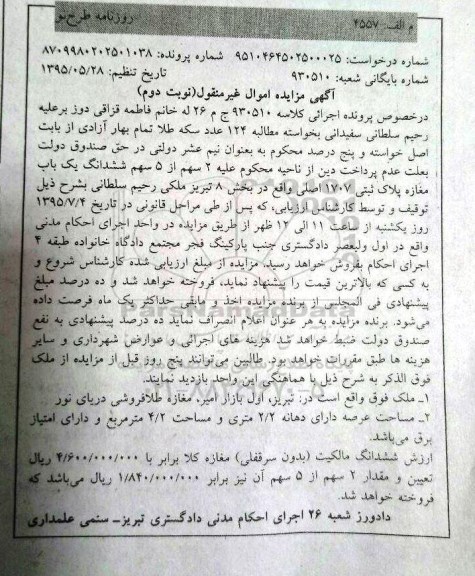 م الف: ۴۵۵۷ روزنامه طرح نو
شماره درخواست: ۹۵۱۰۴۶۴۵۰۲۵۰۰۰۲۵ شماره پرونده: ۸۷۰۹۹۸۰۲۰۲۵۰۱۰۳۸
شماره بایگانی شعبه: ۹۳۰۵۱۰ تاریخ تنظیم: ۱۳۹۵/۰۵/۲۸
آگهی مزایده اموال غیرمنقول(نوبت دوم)
درخصوص پرونده اجرائی کلاسه ۹۳۰۵۱۰ ج م ۲۶ له خانم فاطمه قزاقی دوز برعلیه
رحیم سلطانی سفیدانی بخواسته مطالبه ۱۲۴ عدد سکه طلا تمام بهار آزادی از بابت
اصل خواسته و پنج درصد محکوم به بعنوان نیم عشر دولتی در حق صندوق دولت
بعلت عدم پرداخت دین از ناحیه محکوم علیه ۲ سهم از ۵ سهم ششدانگ یک باب
مغازه پلاک ثبتی ۱۷۰۷ اصلی واقع در بخش ۸ تبریز ملکی رحیم سلطانی بشرح ذیل
توقیف و توسط کارشناس ارزیابی، که پس از طی مراحل قانونی در تاریخ ۱۳۹۵/۷/۴
روز یکشنبه از ساعت ۱۱ الی ۱۲ ظهر از طریق مزایده در واحد اجرای احکام مدنی
واقع در اول ولیعصر دادگستری جنب پارکینگ فجر مجتمع دادگاه خانواده طبقه ۴
اجرای احکام بفروش خواهد رسید. مزایده از مبلغ ارزیابی شده کارشناس شروع و
به کسی که بالاترین قیمت را پیشنهاد نماید، فروخته خواهد شد و ده درصد مبلغ
پیشنهادی فی المجلس از برنده مزایده اخذ و مابقی حداکثر یک ماه فرصت داده
می‌شود. برنده مزایده به هر عنوان اعلام انصراف نماید ده درصد پیشنهادی به نفع
صندوق دولت ضبط خواهد شد هزینه های اجرائی و عوارض شهرداری و سایر
هزینه ها طبق مقررات خواهد بود. طالبین می‌توانند پنج روز قبل از مزایده از ملک
فوق الذکر به شرح ذیل با هماهنگی این واحد بازدید نمایند.
۱ـ ملک فوق واقع است در: تبریز، اول بازار امیر، مغازه طلافروشی دریای نور
۲ـ مساحت عرصه دارای دهانه ۲/۲ متری و مساحت ۴/۲ مترمربع و دارای امتیاز
برق می‌باشد.
ارزش ششدانگ مالکیت (بدون سرقفلی) مغازه کلا برابر با ۴/۶۰۰/۰۰۰/۰۰۰ ریال
تعیین و مقدار ۲ سهم از ۵ سهم آن نیز برابر ۱/۸۴۰/۰۰۰/۰۰۰ ریال می‌باشد که
فروخته خواهد شد.
دادورز شعبه ۲۶ اجرای احکام مدنی دادگستری تبریزـ ستمی علمداری